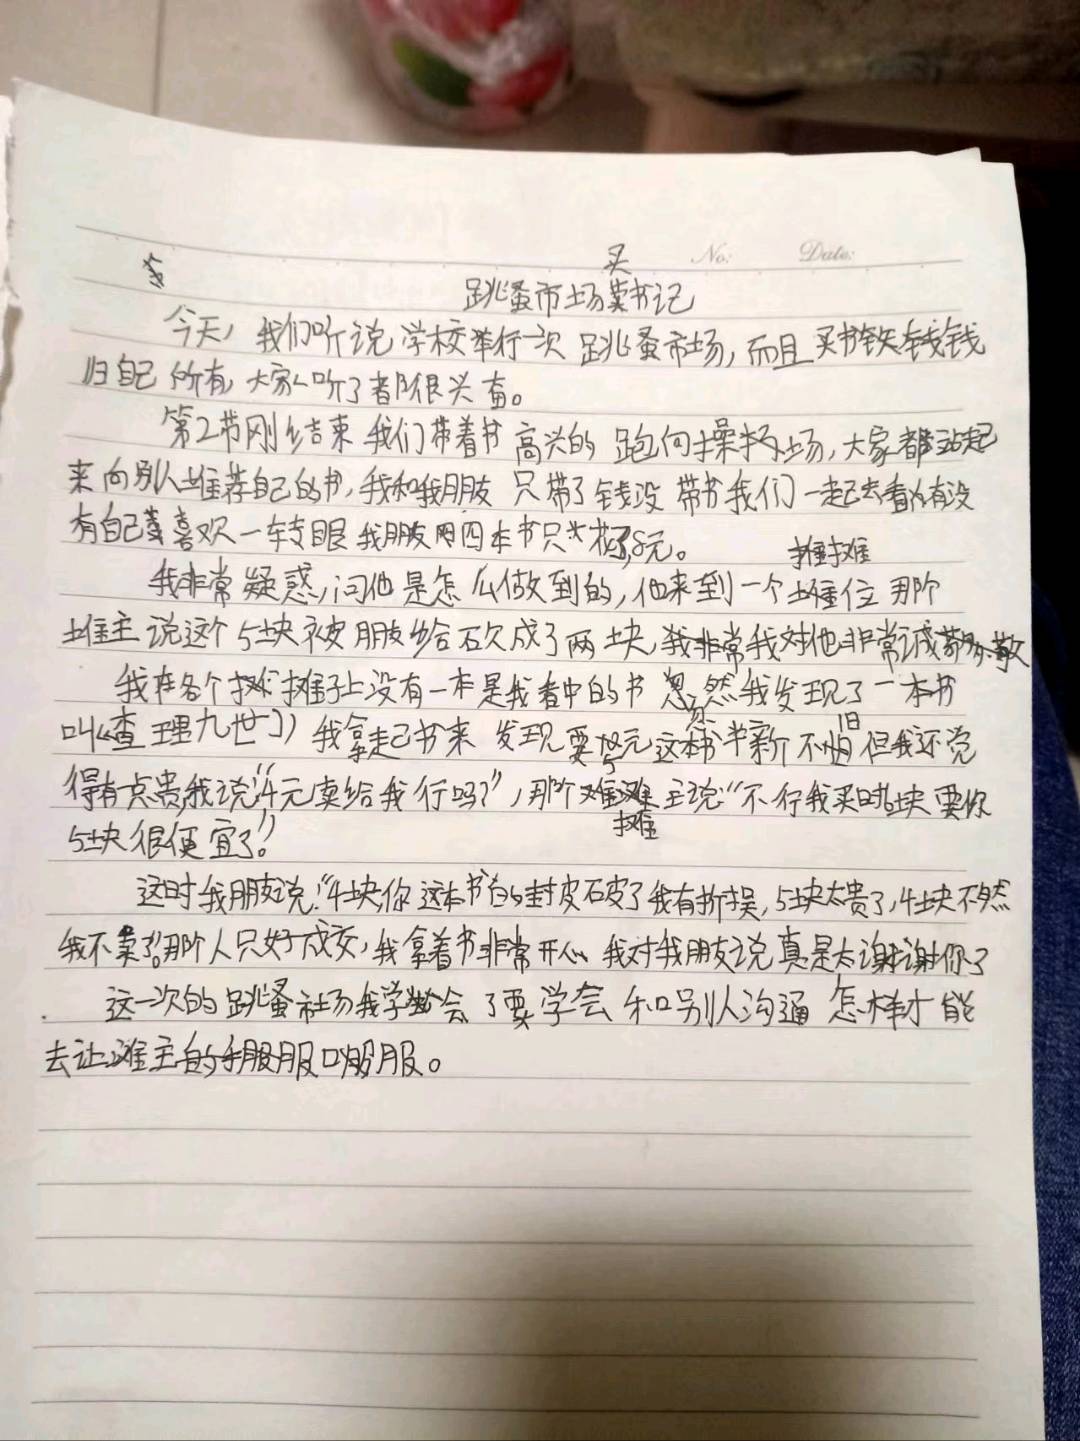 No:   Date:
买
跳蚤市场卖书记
今天，我们听说学校举行一次跳蚤市场，而且买书钱钱
归自己所有，大家听了都很兴奋。
第2节刚结束我们带着书高兴的跑向操场，大家都站起
来向别人推荐自己的书，我和我朋友只带了钱没带书我们一起去看有没
有自己喜欢一转眼我朋友用四本书只花了8元。
摊
我非常疑惑，问他是怎么做到的，他来到一个堆位那个
堆主说这个5块被朋友给砍成了两块，我非常我对他非常诚敬
我在各个摊子上没有一本是我看中的书忽然我发现了一本书
叫《查理九世》我拿起书来发现要5元这本书半新不旧但我还觉
得有点贵，我说“4元卖给我行吗？”，那个滩主说“不行我买时块要你
摊
5块很便宜了！”
这时我朋友说：“4块，你这本书的封皮破了我有折损，5块太贵了，4块不然
我不卖了。”那个人只好成交，我拿着书非常开心我对我朋友说真是太谢谢你了
这一次的跳蚤市场我学会了要学会和别人沟通怎样才能
去让滩主的服服。